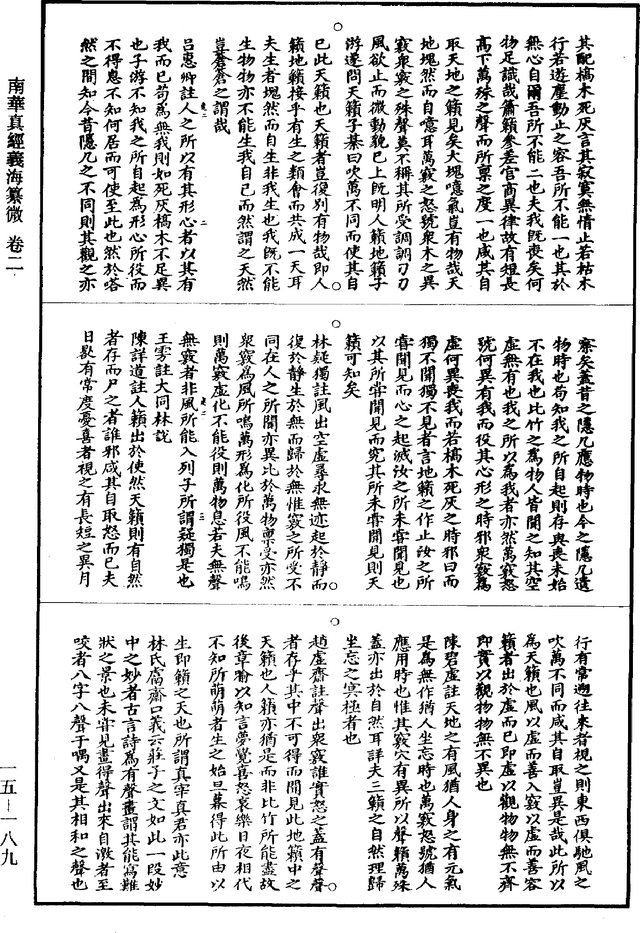 南華真經義海纂微 卷二
其配槁木死灰言其寂寞無情止若枯木
行若遊塵動止之容吾所不能一也其於
無心自爾吾所不能二也夫我既喪矣何
物足識哉簫籟參差宮商異律故有短長
高下萬殊之聲而所稟之度一也咸其自
取天地之籟見矣大塊噫氣豈有物哉天
地塊然而自噫耳萬竅之怒號衆木之異
竅衆竅之殊聲莫不稱其所受調調刁刁
風欲止而微動貌巳上既明人籟地籟子
游遂問天籟子綦曰吹萬不同而使其自
巳此天籟也天籟者豈復別有物哉即人
籟地籟接乎有生之類會而共成一天耳
夫生者塊然而自生非我生也我既不能
生物物亦不能生我自巳而然謂之天然
豈蒼蒼之謂哉
呂惠卿註人之所以有其形心者以其有
我而已苟為無我則如死灰槁木不足異
也子游不知我之所自起為形心所役而
不得息不知何居而可使至此也然於嗒
然之間知今昔隱几之不同則其觀之亦
察矣蓋昔之隱几應物時也今之隱几遺
物時也苟知我之所自起則存與喪未始
不在我也比竹之為物人皆聞之知其空
虛無有也我之所以為我者亦然萬竅怒
號何異有我而役其心形之時邪衆竅為
虛何異喪我而若槁木死灰之時邪曰而
獨不聞獨不見者言地籟之作止汝之所
嘗聞見而心之起滅汝之所未嘗聞見也
以其所嘗聞見而究其所未嘗聞見則天
籟可知矣
林疑獨註風出空虛尋求無迹起於靜而
復於靜生於無而歸於無惟竅之所受不
同在人之所聞亦異比於萬物稟受亦然
衆竅為風所鳴萬形為化所役風不能鳴
則萬竅虛化不能役則萬物息若夫無聲
無竅者非風所能入列子所謂疑獨是也
王雱註大同林說
陳詳道註人籟出於使然天籟則有自然
者存而尸之者誰邪咸其自取怒而已夫
日晷有常度憂喜者視之有長短之異月
行有常遡往來者視之則東西俱馳風之
吹萬不同而咸其自取豈異是哉此所以
為天籟也風以虛而善入竅以虛而善容
籟者出於虛而已即虛以觀物物無不齊
即實以觀物物無不異也
陳碧虛註天地之有風猶人身之有元氣
是為無作猶人坐忘時也萬竅怒號猶人
應用時也惟其竅穴有異所以聲籟萬殊
蓋亦出於自然耳詳夫三籟之自然理歸
坐忘之冥極者也
趙虛齋註聲出衆竅誰實怒之蓋有聲聲
者存乎其中不可得而聞見此地籟中之
天籟也人籟亦猶是而非比竹所能盡故
後章喻以知言夢覺喜怒哀樂日夜相代
不知所萌萌者生之始旦暮得此所由以
生即籟之天也所謂真宰真君亦此意
林氏鬳齋口義云莊子之文如此一段妙
中之妙者古言詩為有聲畫謂其能寫難
狀之景也未嘗見畫得聲出來自激者至
咬者八字八聲于喁又是其相和之聲也
一五─一八九